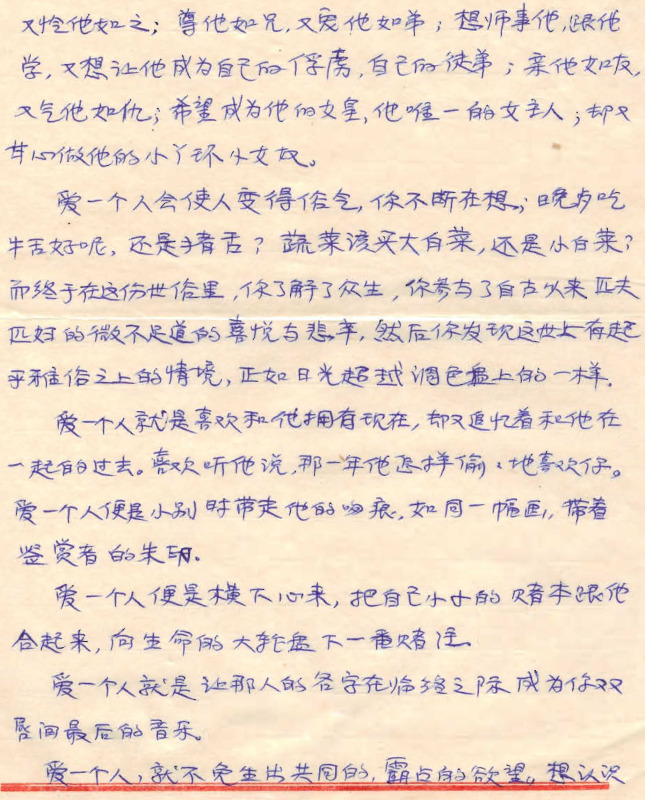 又怜他如之；尊他如兄，又爱他如弟；想师事他，跟他
学，又想让他成为自己的俘虏，自己的徒弟；亲他如友，
又气他如仇；希望成为他的女皇，他唯一的女主人；却又
甘心做他的小丫环小女奴。
爱一个人会使人变得俗气，你不断在想：晚歺吃
牛舌好呢，还是猪舌？蔬菜该买大白菜，还是小白菜？
而终于在这份世俗里，你了解了众生，你参与了自古以来匹夫
匹妇的微不足道的喜悦与悲辛，然后你发现这世上有超
乎雅俗之上的情境，正如日光超越调色盘上的一样。
爱一个人就是喜欢和他拥有现在，却又追忆着和他在
一起的过去。喜欢听他说，那一年他怎样偷々地喜欢你。
爱一个人便是小别时带走他的吻痕，如同一幅画，带着
鉴赏者的朱印。
爱一个人便是横下心来，把自己小小的赌本跟他
合起来，向生命的大轮盘下一番赌注。
爱一个人就是让那人的名字在临终之际成为你双
唇间最后的音乐。
爱一个人，就不免生出共同的，霸占的欲望。想认识